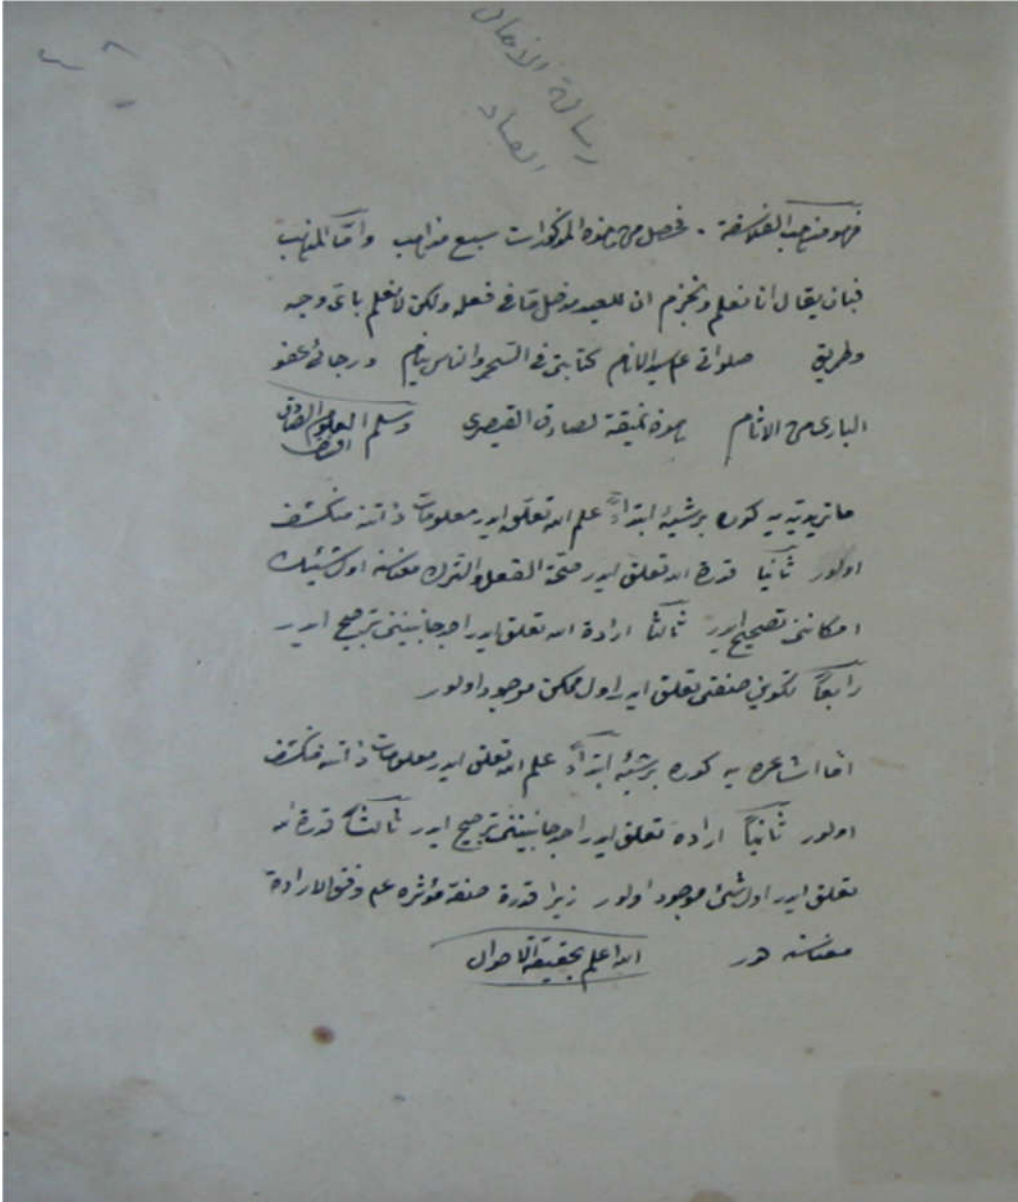 رسالة الافعال
العباد
فهو مذهب الفلاسفة . فحصل من هذه المذكورات سبع مذاهب واما المذهب
فبان يقال انا نعلم ونجزم ان للعبد مدخل ما فى فعله ولكن لا نعلم باى وجه
وطريق صلواتى على سيد الانام كتابتى فى السحر والناس نيام ورجائى عفو
البارى من الاثام هذه نميقة لصادق القيصرى وسلم
ماتريديه يه كوره بر شيئه ابتداءً علم الله تعلق ايدر معلومات ذاتنه منكشف
اولور ثانياً قدرة الله تعلق ايدر صحة الفعل والترك معناسنه اول شيئك
امكاننى تصحيح ايدر ثالثاً ارادة الله تعلق ايدر احد جانبيننى ترجيح ايدر
رابعاً تكوين صفتى تعلق ايدر اول ممكن موجود اولور
اما اشاعره يه كوره بر شيئه ابتداءً علم الله تعلق ايدر معلومات ذاتنه منكشف
اولور ثانياً اراده تعلق ايدر احد جانبيننى ترجيح ايدر ثالثاً قدرة الله
تعلق ايدر اول شئ موجود اولور زيرا قدرة صفة مؤثره على وفق الارادة
معناسنه در الله اعلم بحقيقة الاحوال